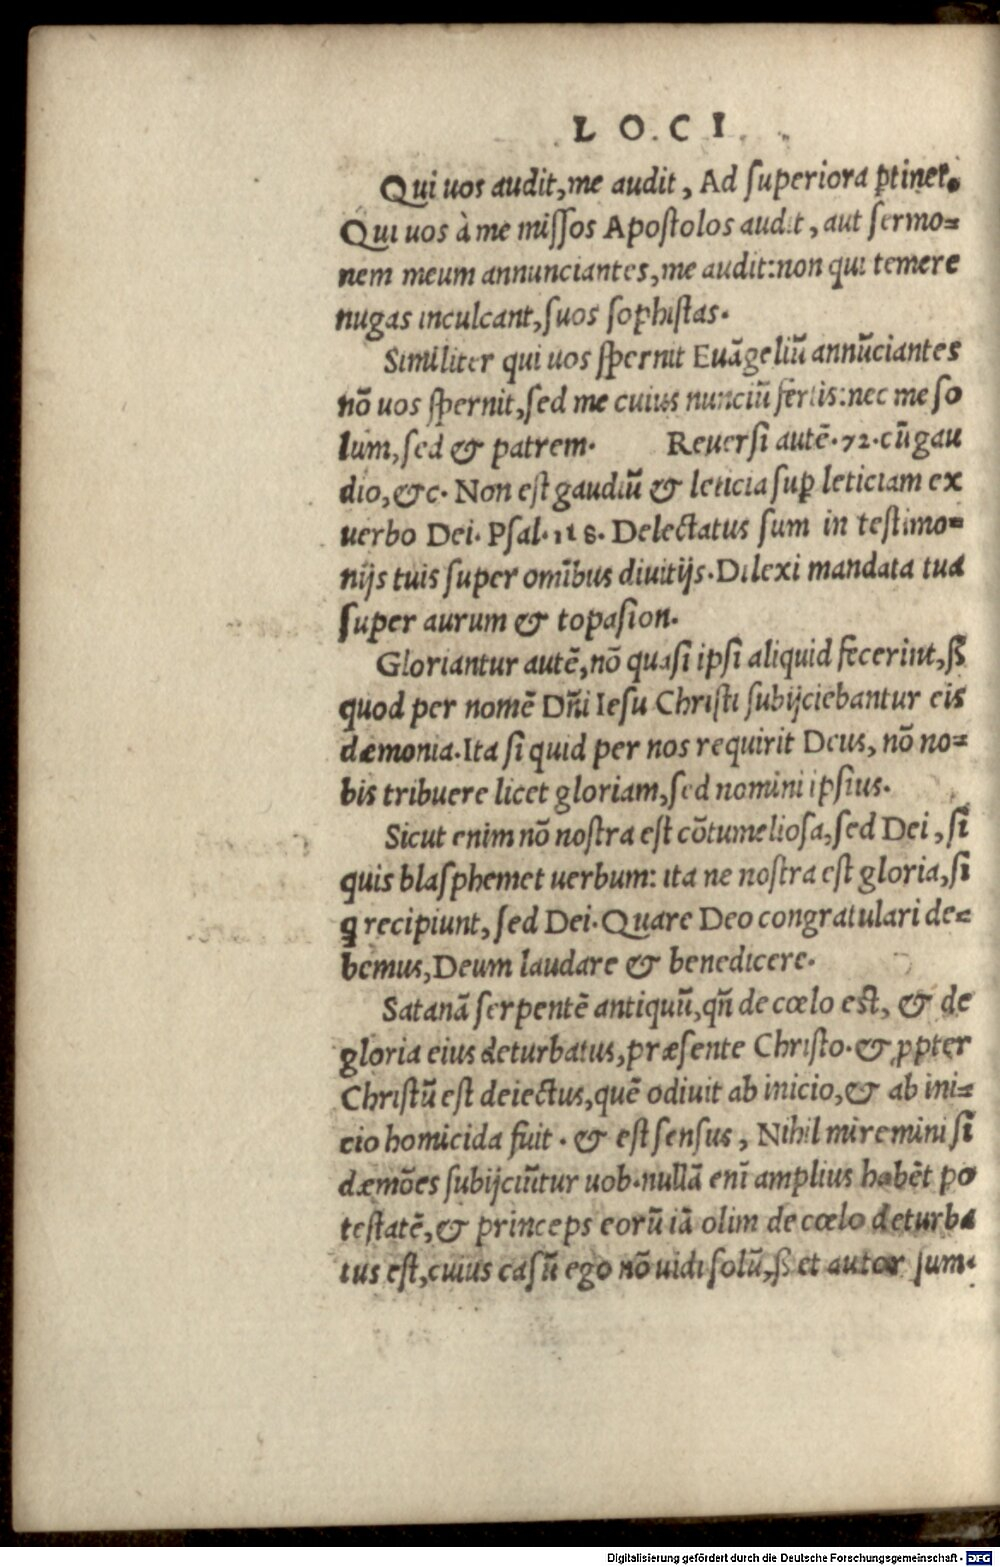 LOCI
Qui uos audit, me audit, Ad superiora ꝑtinet.
Qui uos à me missos Apostolos audit, aut sermo=
nem meum annunciantes, me audit: non qui temere
nugas inculcant, suos sophistas.
Similiter qui uos spernit Euãgeliũ annũciantes
nõ uos spernit, sed me cuius nunciũ fertis: nec me so
lum, sed & patrem. Reuersi autẽ. 72. cũ gau
dio, &c. Non est gaudiũ & leticia suꝑ leticiam ex
uerbo Dei. Psal. 118. Delectatus sum in testimo=
nijs tuis super omĩbus diuitijs. Dilexi mandata tua
super aurum & topasion.
Gloriantur autẽ, nõ quasi ipsi aliquid fecerint, ß
quod per nomẽ Dñi Iesu Christi subijciebantur eis
dæmonia. Ita si quid per nos requirit Deus, nõ no=
bis tribuere licet gloriam, sed nomini ipsius.
Sicut enim nõ nostra est cõtumeliosa, sed Dei, si
quis blasphemet uerbum: ita ne nostra est gloria, si
ꝗ recipiunt, sed Dei. Quare Deo congratulari de=
bemus, Deum laudare & benedicere.
Satanã serpentẽ antiquũ, qñ de cœlo est, & de
gloria eius deturbatus, præsente Christo. & ꝓpter
Christũ est deiectus, quẽ odiuit ab inicio, & ab ini=
cio homicida fuit. & est sensus, Nihil miremini si
dæmões subijciũtur uob. nullã enĩ amplius habẽt po
testatẽ, & princeps eorũ iã olim de cœlo deturba
tus est, cuius casũ ego nõ uidi solũ, ß et autor sum.
Digitalisierung gefördert durch die Deutsche Forschungsgemeinschaft - DFG